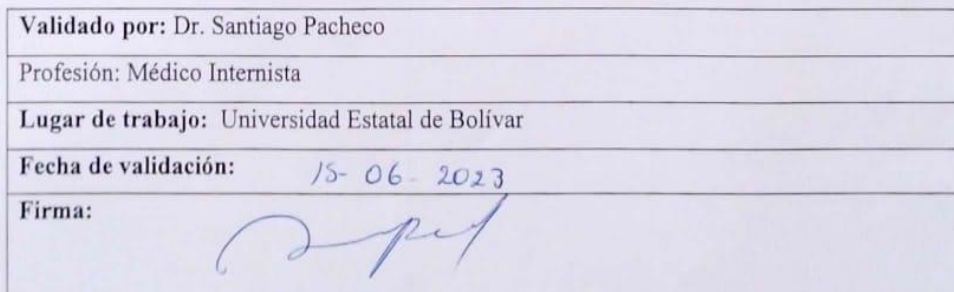 Validado por: Dr. Santiago Pacheco
Profesión: Médico Internista
Lugar de trabajo: Universidad Estatal de Bolívar
Fecha de validación: 15-06-2023
Firma: